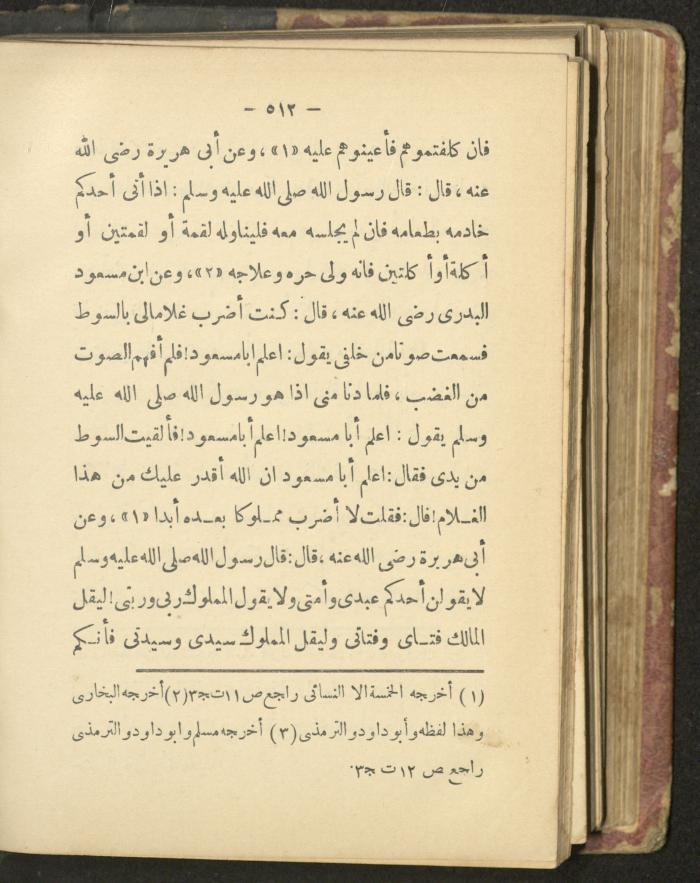 — ٥١٢ —
فان كلفتموهم فأعينوهم عليه «١» ، وعن أبى هريرة رضى الله
عنه ، قال : قال رسول الله صلى الله عليه وسلم : اذا أتى أحدكم
خادمه بطعامه فان لم يجلسه معه فليناوله لقمة أو لقمتين أو
أكلة أو أكلتين فانه ولى حره وعلاجه «٢» ، وعن ابن مسعود
البدرى رضى الله عنه ، قال : كنت أضرب غلاما لى بالسوط
فسمعت صوتا من خلفى يقول : اعلم ابا مسعود ! فلم أفهم الصوت
من الغضب ، فلما دنا منى اذا هو رسول الله صلى الله عليه
وسلم يقول : اعلم أبا مسعود ! اعلم أبا مسعود ! فألقيت السوط
من يدى فقال : اعلم أبا مسعود ان الله أقدر عليك من هذا
الغـلام ! قال : فقلت لا أضرب ممـلوكا بعـده أبدا «١» ، وعن
أبى هريرة رضى الله عنه ، قال : قال رسول الله صلى الله عليه وسلم
لا يقولن أحدكم عبدى وأمتى ولا يقول المملوك ربى وربتى ! ليقل
المالك فتـاى وفتاتى وليقل المملوك سيدى وسيدتى فأنـكم
(١) أخرجه الخمسة الا النسائى راجع ص ١١ ت ج٣ (٢) أخرجه البخارى
وهذا لفظه وأبو داود والترمذى (٣) أخرجه مسلم وابو داود والترمذى
راجع ص ١٢ ت ج٣.